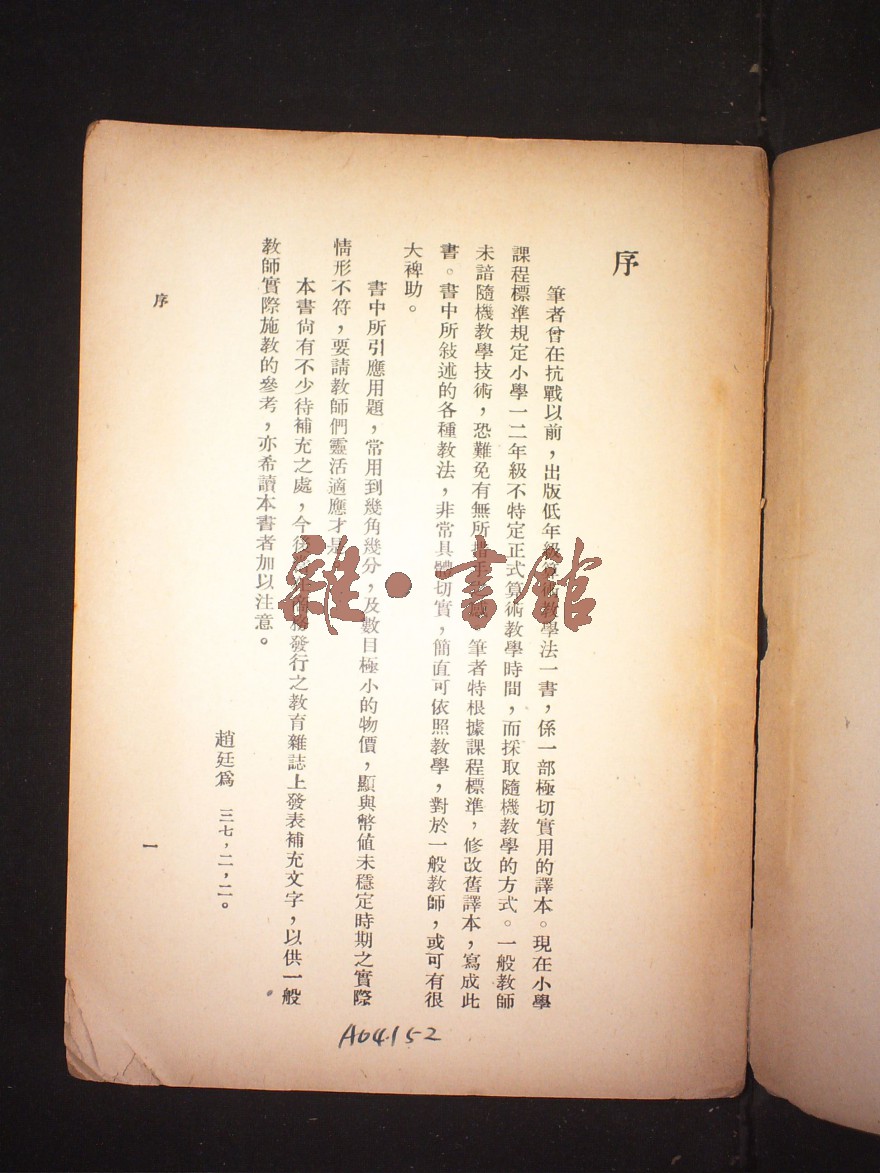 序
筆者曾在抗戰以前，出版低年級算術教學法一書，係一部極切實用的譯本。現在小學
課程標準規定小學一二年級不特定正式算術教學時間，而採取隨機教學的方式。一般教師
未諳隨機教學技術，恐難免有無所措手 筆者特根據課程標準，修改舊譯本，寫成此
書。書中所敍述的各種教法，非常具體切實，簡直可依照教學，對於一般教師，或可有很
大裨助。
書中所引應用題，常用到幾角幾分，及數目極小的物價，顯與幣值未穩定時期之實際
情形不符，要請教師們靈活適應才是
本書尙有不少待補充之處，今後 發行之教育雜誌上發表補充文字，以供一般
教師實際施教的參考，亦希讀本書者加以注意。
趙廷爲 三七，二，二。
序
一
雜·書館
A04152